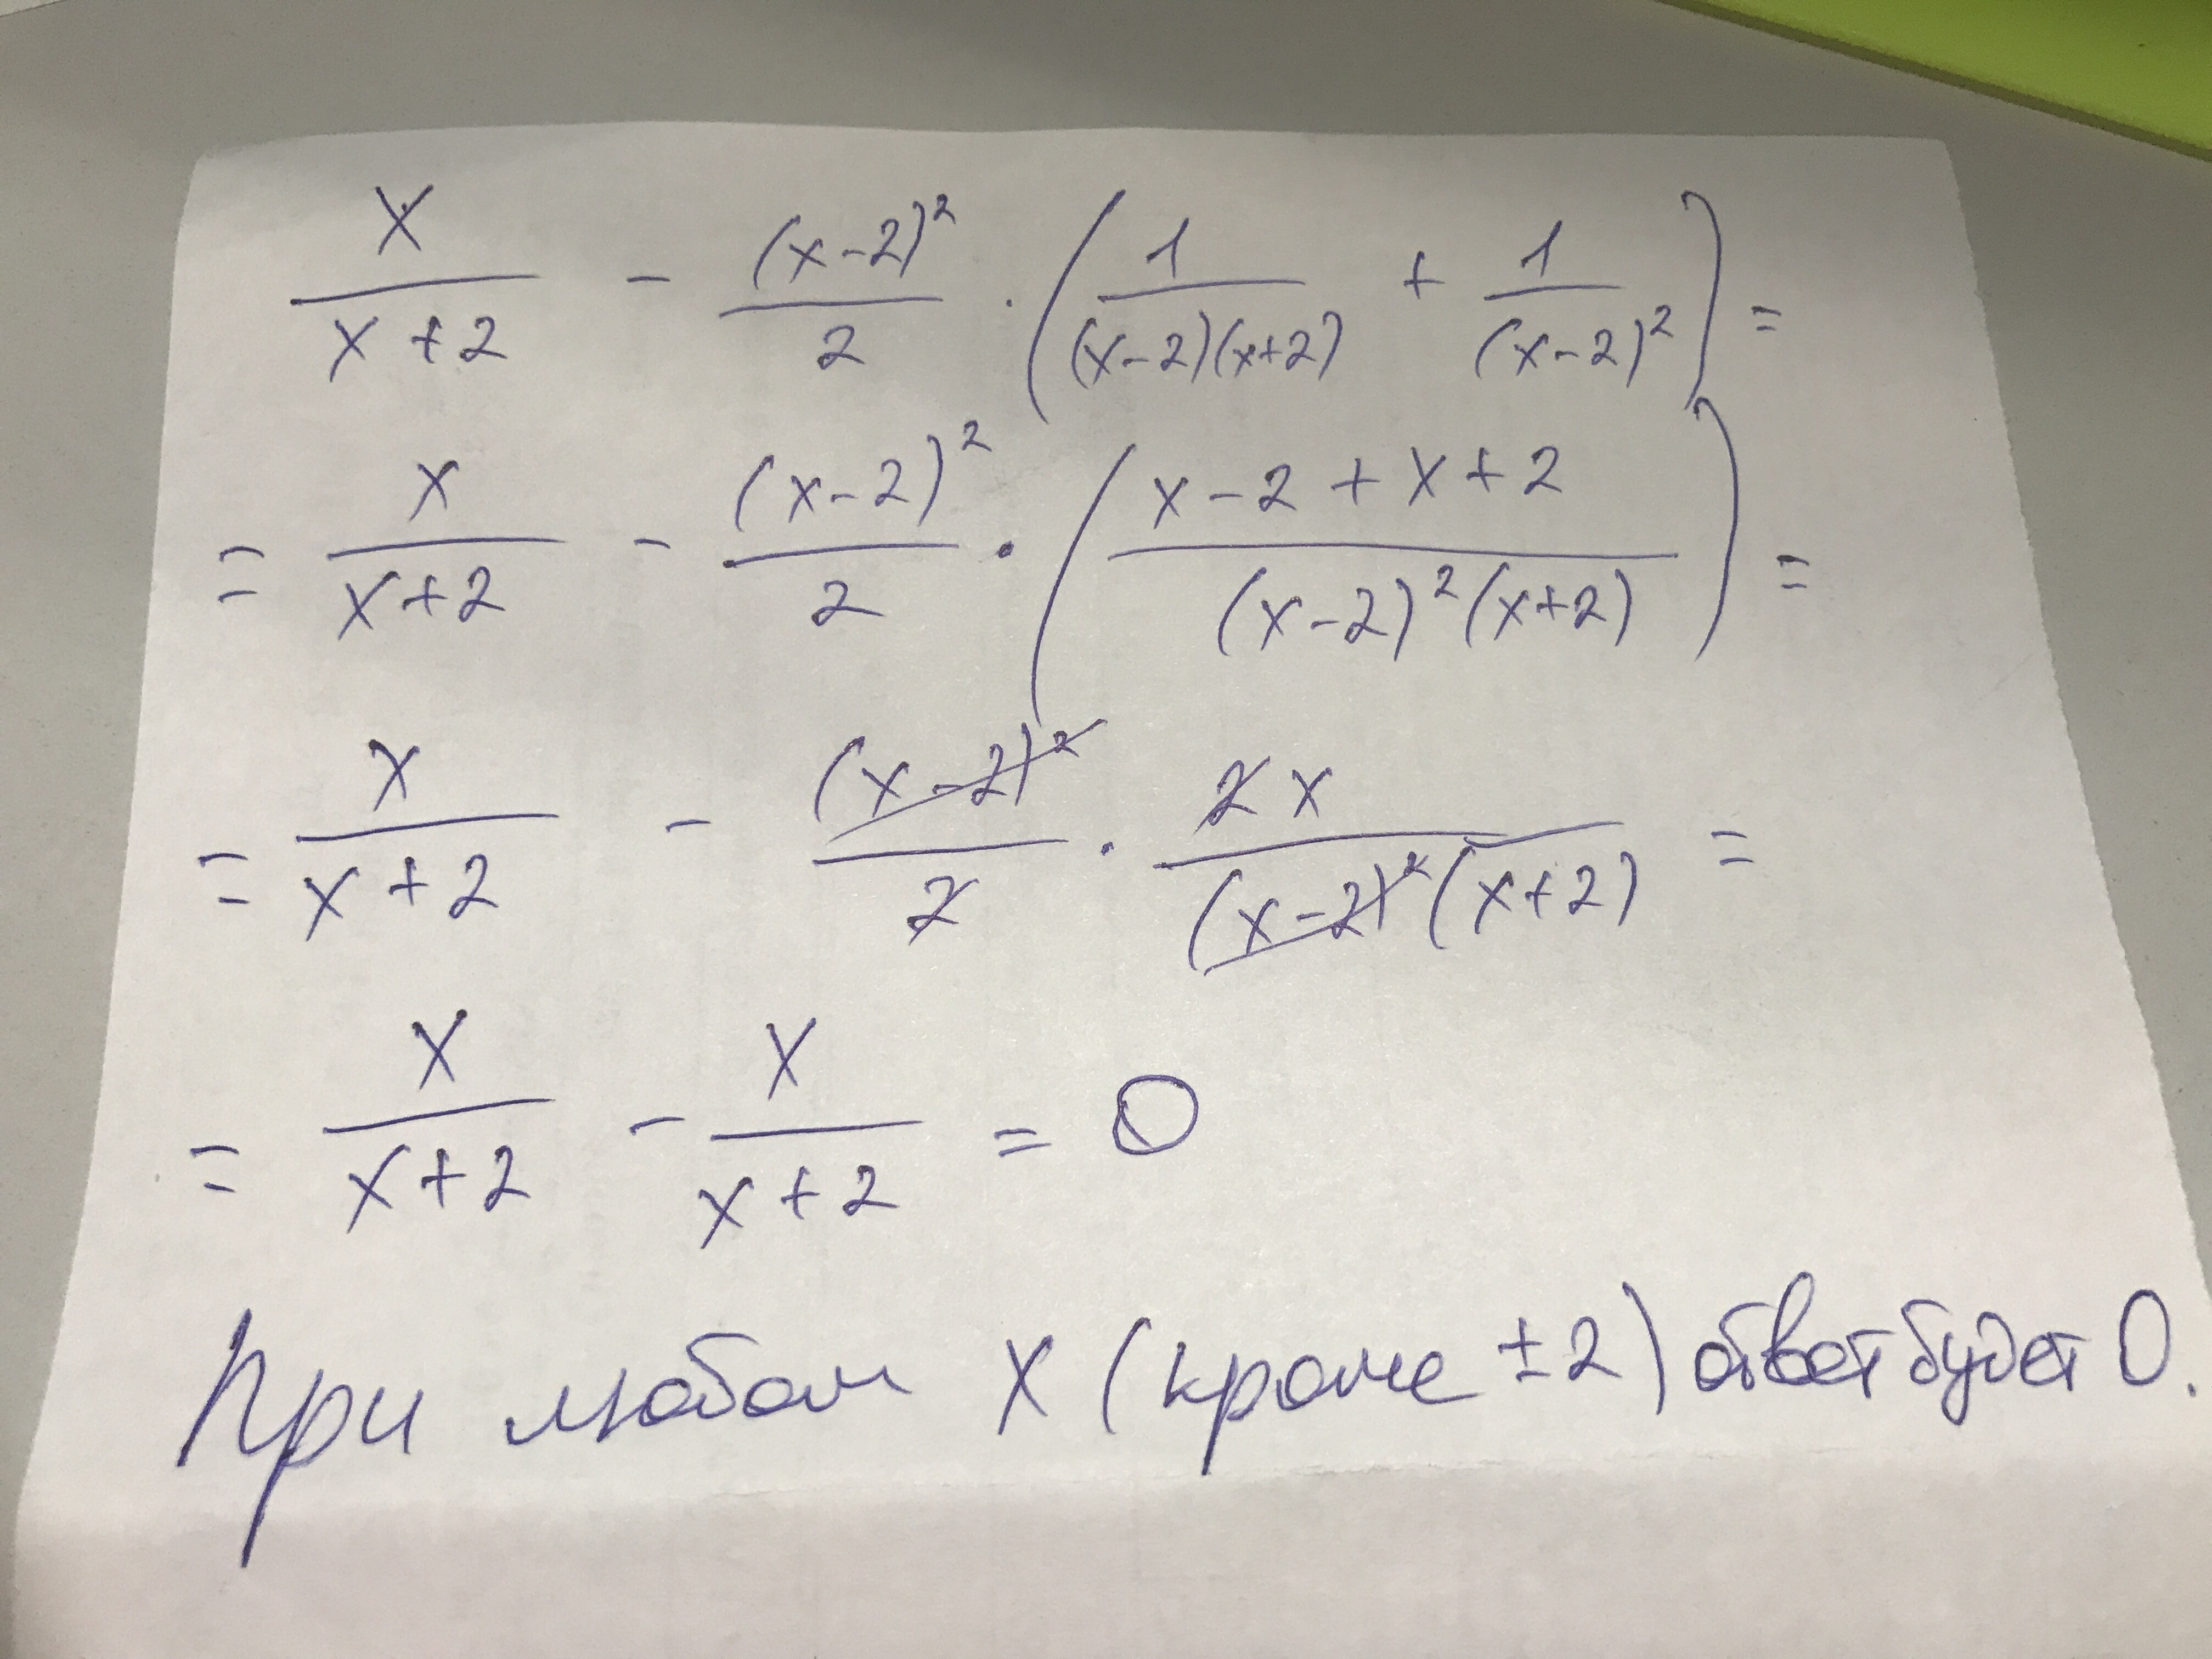 x/(x+2) - (x-2)²/2 · (1/((x-2)(x+2)) + 1/(x-2)²) =
= x/(x+2) - (x-2)²/2 · ((x-2+x+2)/((x-2)²(x+2))) =
= x/(x+2) - (x-2)²/2 · 2x/((x-2)²(x+2)) =
= x/(x+2) - x/(x+2) = 0
При любом x (кроме ±2) ответ будет 0.